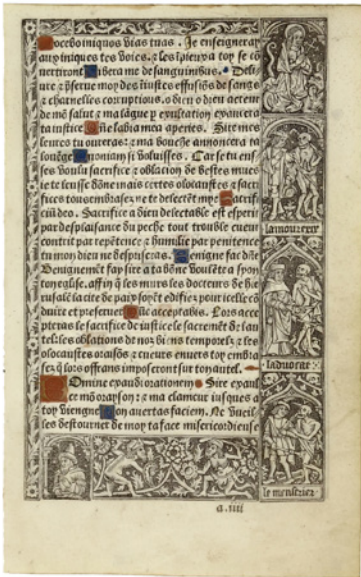 Docebo iniquos vias tuas. Je enseigneray
aux iniques tes voies. ⁊ les ĩpieux a toy se cõ
vertiront Libera me de sanguinibus. Deli-
ure ⁊ p̃serue moy des iiustes effusiõs de sange
⁊ charnelles corruptions. o dieu o dieu acteur
de mõ salut ⁊ ma lãgue p̃ exultation exaucera
ta iustice Dñe labia mea aperies. Sire mes
leures tu ouureras: ⁊ ma bouche annoncera ta
louẽge Quoniam si voluisses. Car se tu eus
ses voulu sacrifice ⁊ oblation de bestes mues
ie te leusse dõne mais certes olocaustes ⁊ sacri
fices tous embrasez ne te delectẽt mye Sacrifi
ciũ deo. Sacrifice a dieu delectable est esperit
par desplaisance du peche tout trouble cueur
contrit par repẽtence ⁊ humilie par penitence
tu mon dieu ne despriseras. Benigne fac dñe
Benignemẽt fay sire a ta bõne voulẽte a syon
ton eglise. affin q̃ les murs les docteurs de hie
rusalẽ la cite de paix soyẽt edifiez pour icelle cõ
duire et preseruer Tũc acceptabis. Lors acce
pteras le sacrifice de iustice le sacremẽt de lau
tel: les oblations de noz biẽs temporelz ⁊ les
olocaustes oraisõs ⁊ cueurs enuers toy embra
sez q̃ lors offrans imposeront sur ton autel.
Domine exaudi orationem Sire exaul
ce mõ orayson: ⁊ ma clameur iusques a
toy viengne Non auertas faciem. Ne vueil
les destourner de moy ta face misericordieuse
lamoureux
laduocat
le menstrier
G.iiii